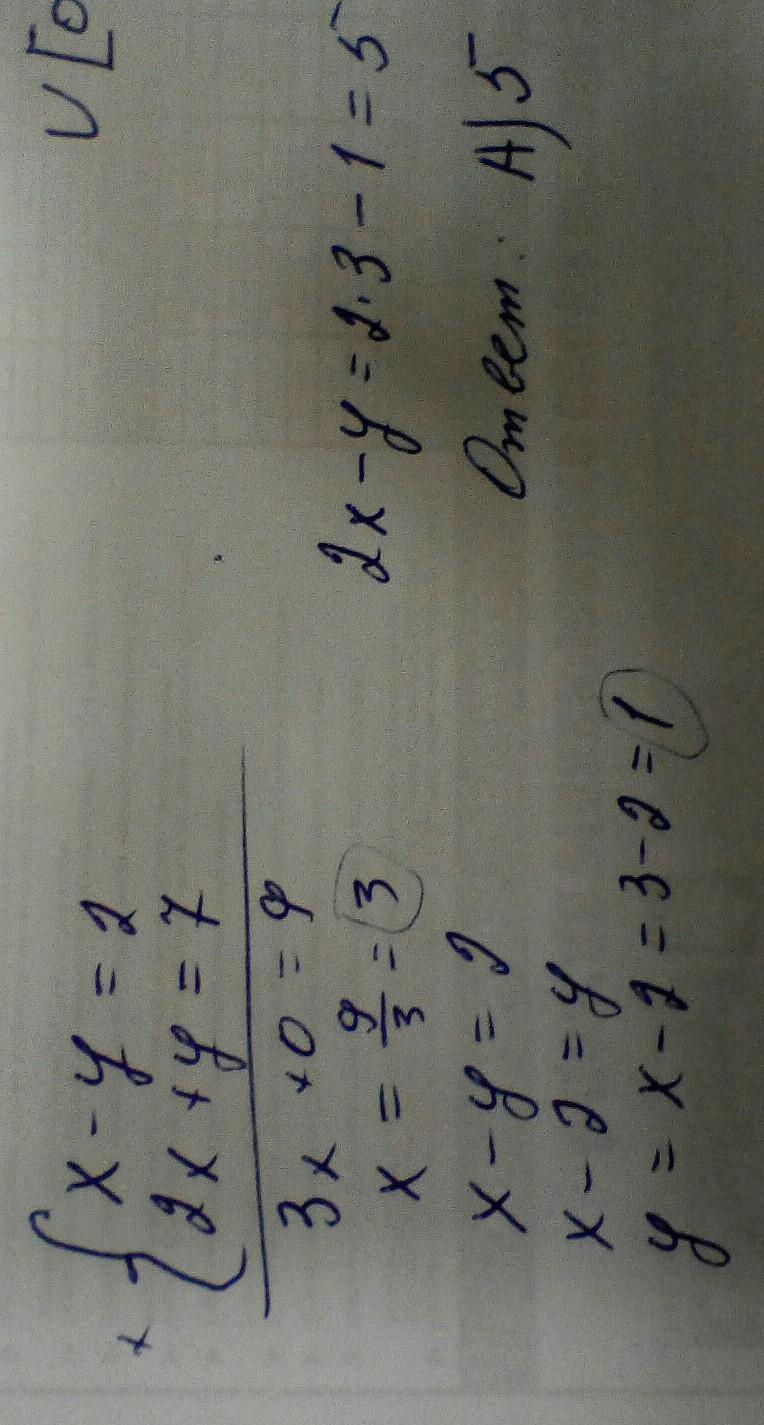 x - y = 2
2x + y = 7
3x + 0 = 9
x = 9/3 = 3
x - y = 2
x - 2 = y
y = x - 2 = 3 - 2 = 1
2x - y = 2·3 - 1 = 5
Ответ: А) 5